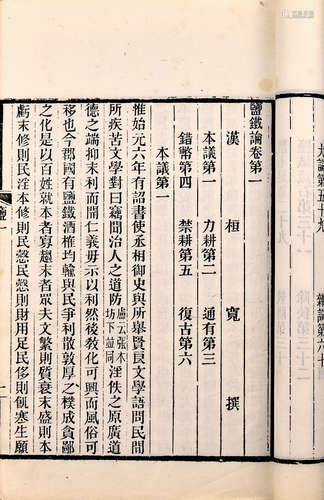 大論第五十九 雜論第六十
鹽鐵論卷第一
漢 桓 寬 撰
本議第一 力耕第二 通有第三
錯幣第四 禁耕第五 復古第六
本議第一
惟始元六年有詔書使丞相御史與所舉賢良文學語問民間
所疾苦文學對曰竊聞治人之道防盧云張本坊下並同淫佚之原廣道
德之端抑末利而開仁義毋示以利然後敎化可興而風俗可
移也今郡國有鹽鐵酒榷均輸與民爭利散敦厚之樸成貪鄙
之化是以百姓就本者寡趨末者眾夫文繁則質衰末盛則本
虧末修則民淫本修則民愨民愨則財用足民侈則飢寒生願